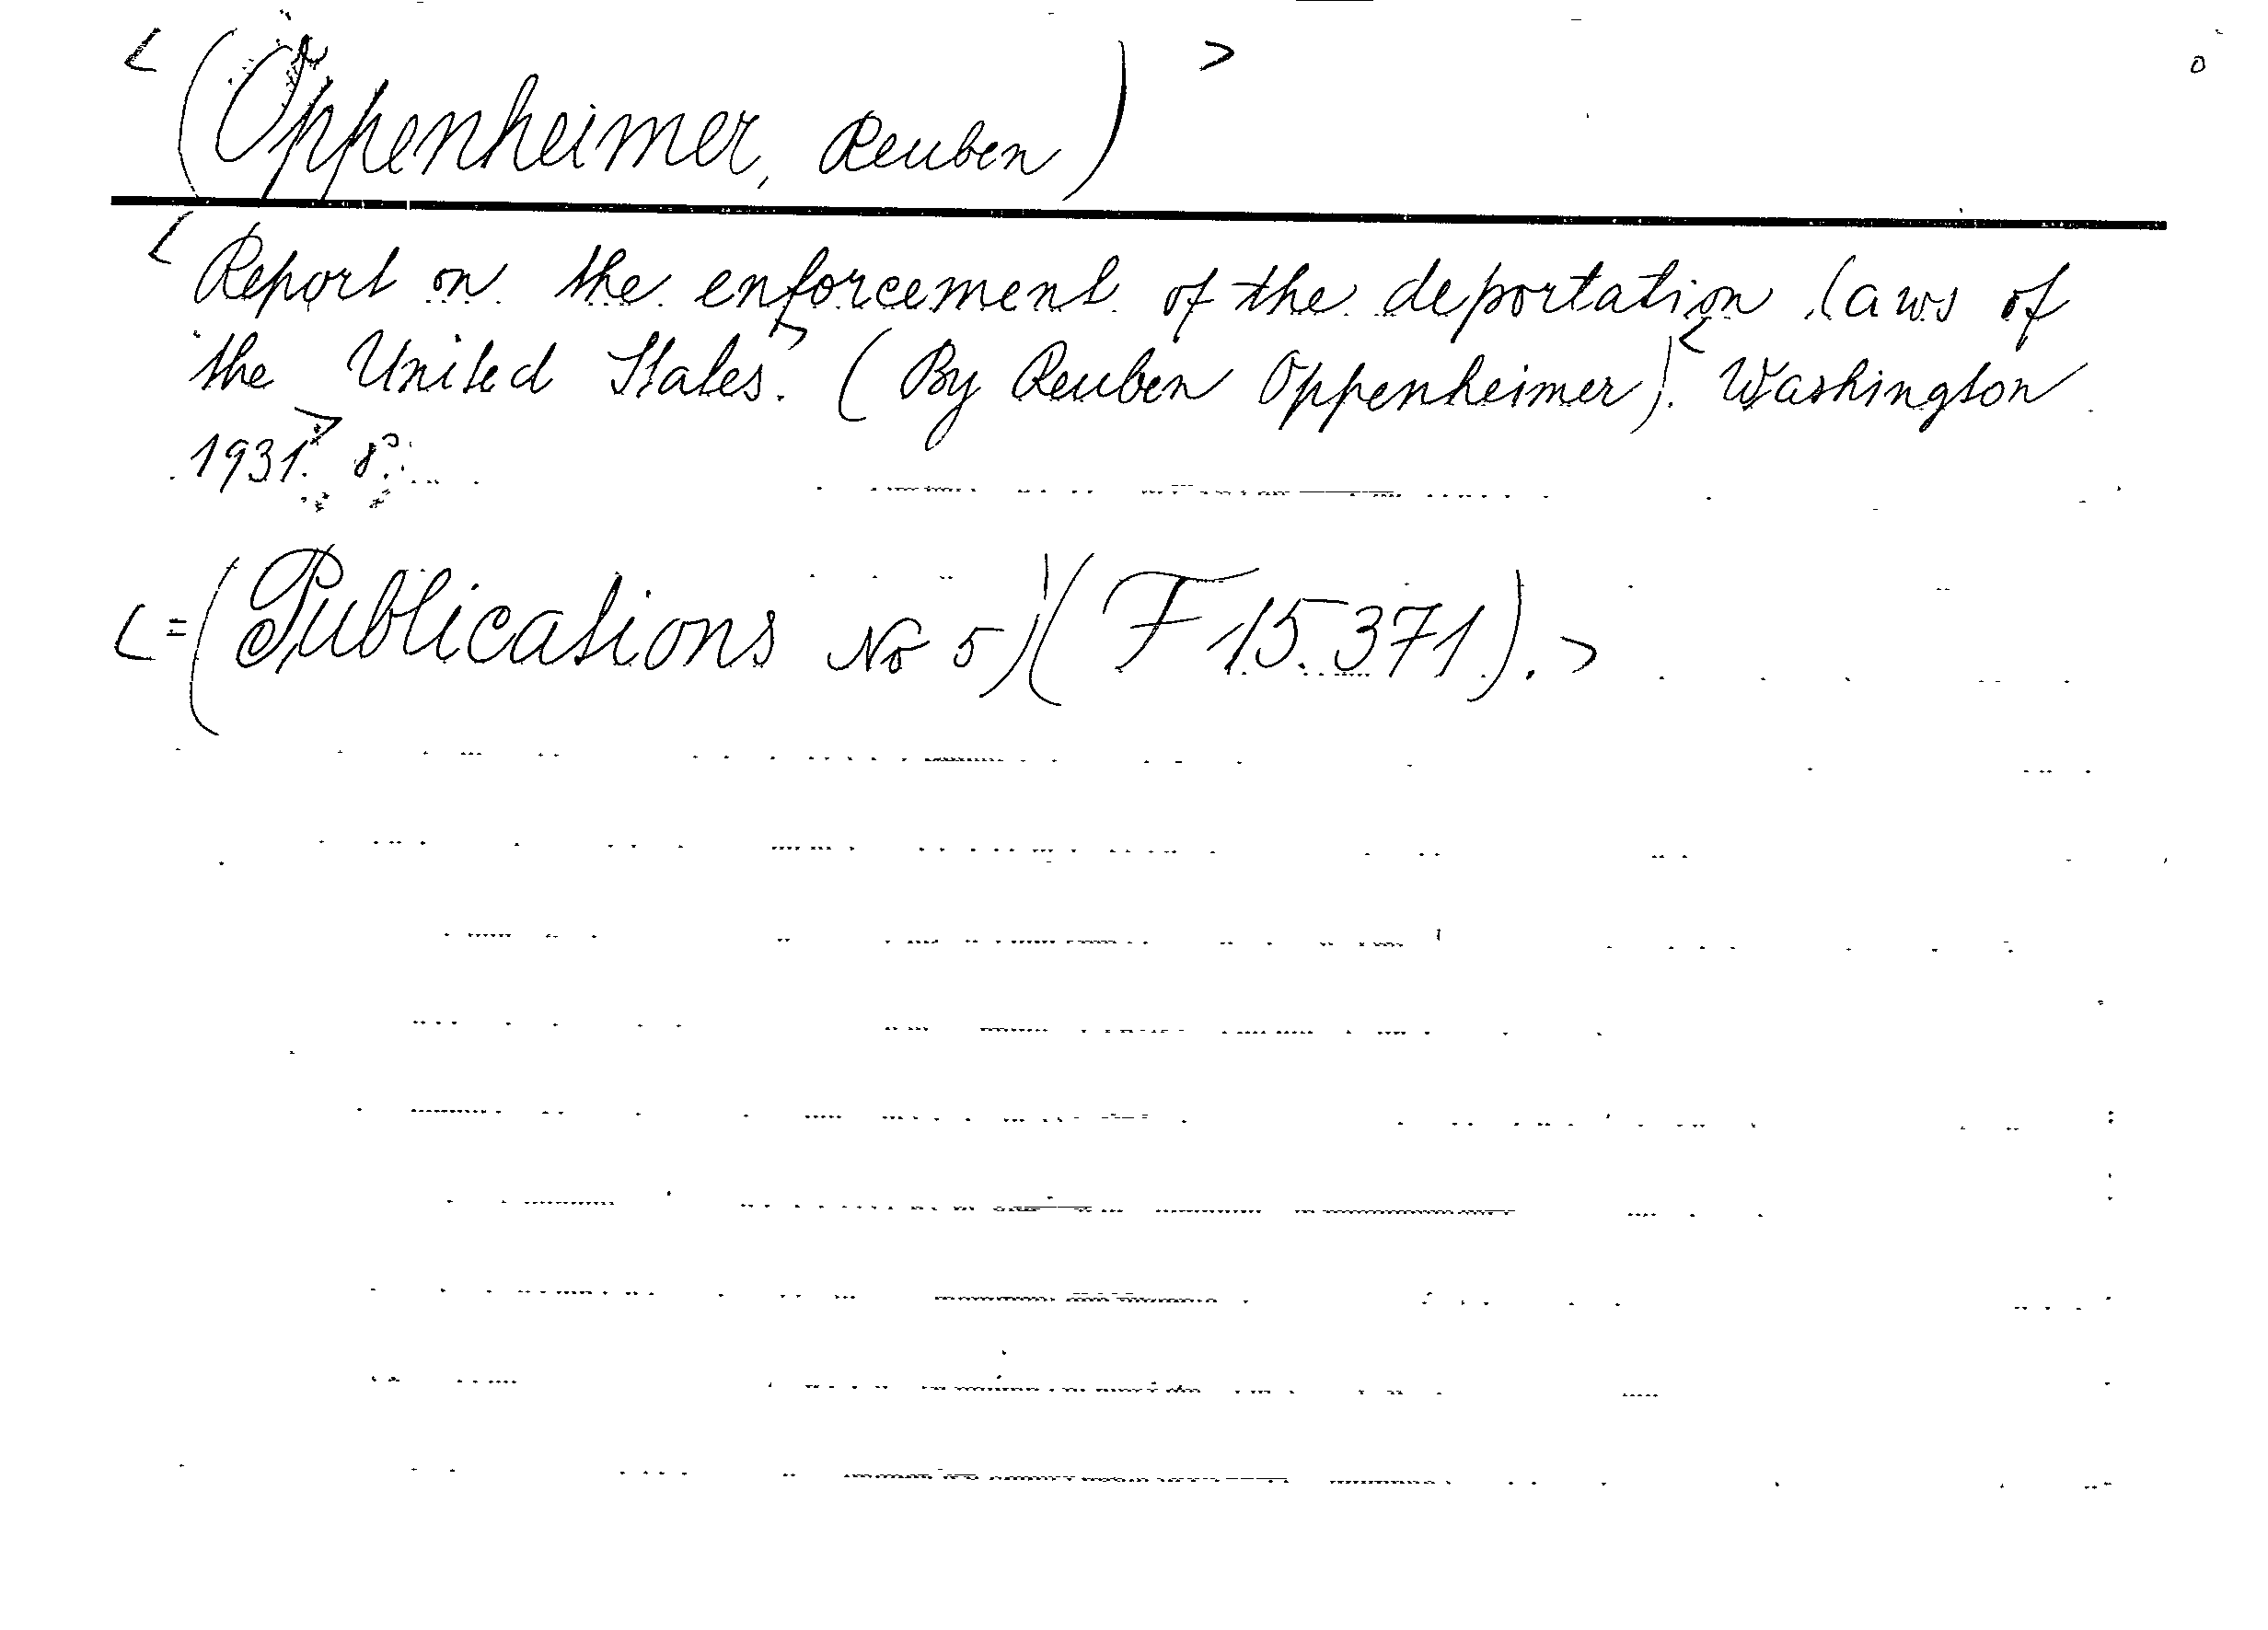 < (Oppenheimer, Reuben) >
< Report on the enforcement of the deportation laws of
the United States.> (By Reuben Oppenheimer).< Washington
1931.> 8°.
< = (Publications No 5) (F 15.371). >